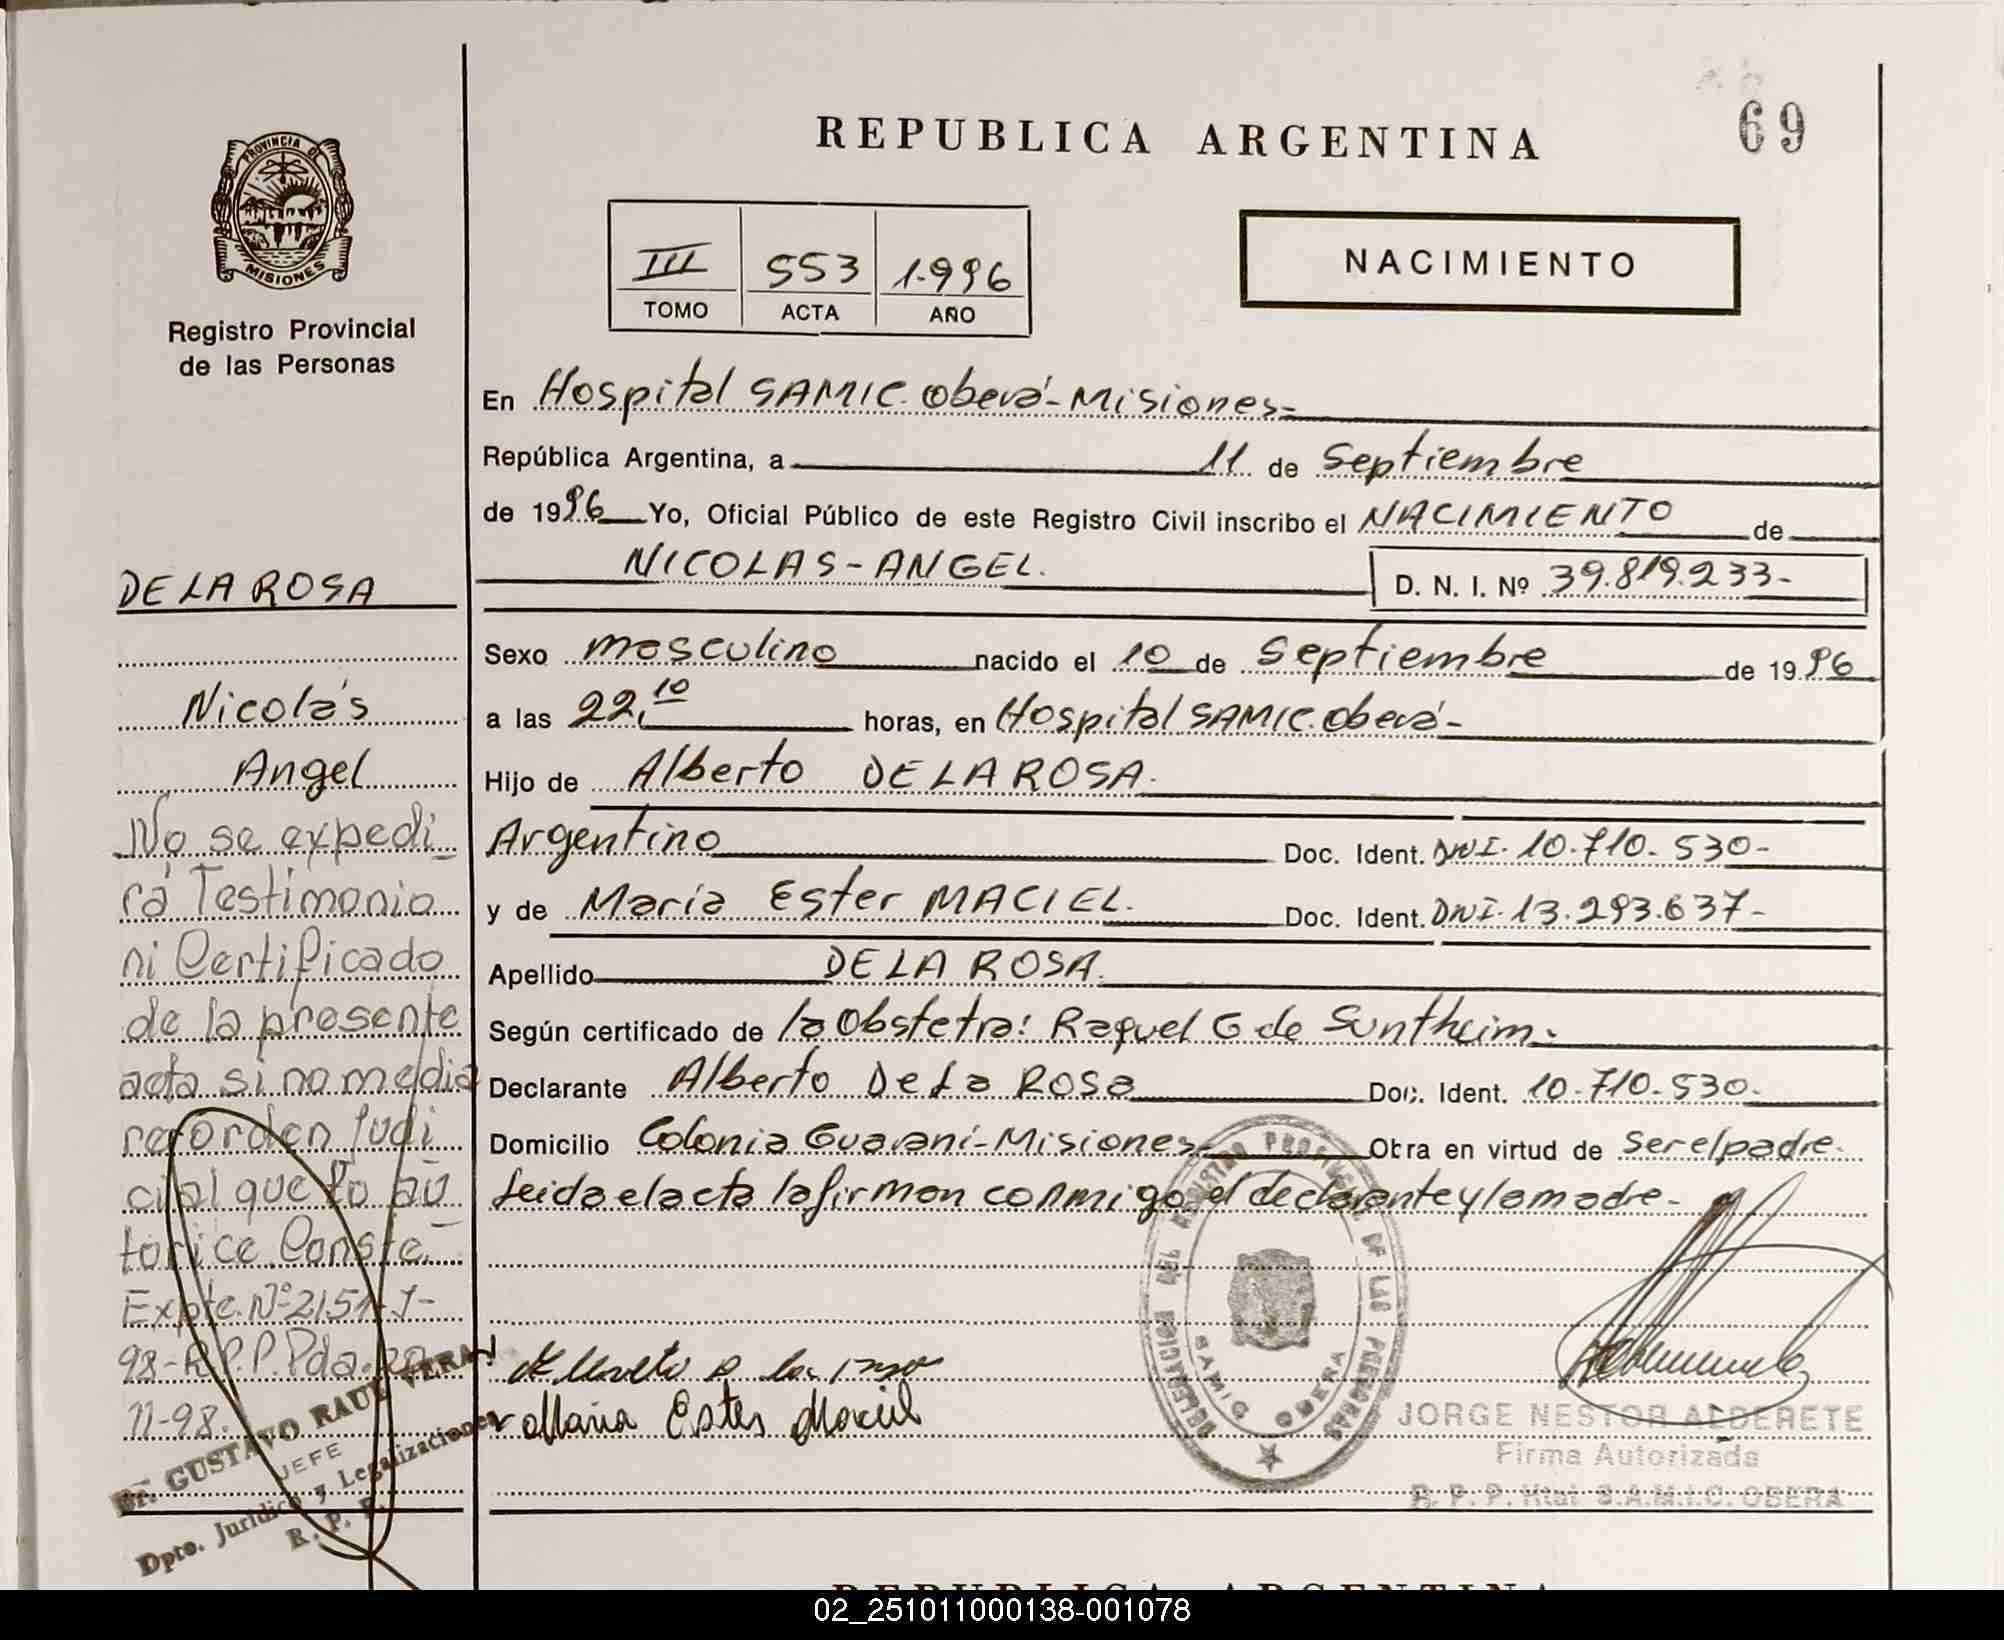 69
REPUBLICA ARGENTINA
PROVINCIA DE
MISIONES
Registro Provincial
de las Personas
III 553 1.996
TOMO ACTA AÑO
NACIMIENTO
En Hospital SAMIC. Oberá-Misiones=
República Argentina, a 11 de Septiembre
de 1996 Yo, Oficial Público de este Registro Civil inscribo el NACIMIENTO de
NICOLAS-ANGEL. D. N. I. Nº 39.819.233-
Sexo masculino nacido el 10 de Septiembre de 1996
a las 22,10 horas, en Hospital SAMIC. Oberá-
Hijo de Alberto DE LA ROSA.
Argentino Doc. Ident. DNI. 10.710.530-
y de María Ester MACIEL. Doc. Ident. DNI. 13.293.637-
Apellido DE LA ROSA.
Según certificado de la Obstetra: Raquel G de Suntheim.
Declarante Alberto De La Rosa Doc. Ident. 10.710.530.
Domicilio Colonia Guaraní-Misiones Obra en virtud de ser el padre.
Leida el acta la firman conmigo el declarante y la madre-
Alberto de la rosa
Maria Ester Maciel
DELEGACION DEL REGISTRO PROVINCIAL DE LAS PERSONAS
SAMIC OBERA
JORGE NESTOR ALDERETE
Firma Autorizada
R. P. P. Htal S.A.M.I.C. OBERA
DE LA ROSA
Nicolás
Angel
No se expedi_
rá Testimonio
ni Certificado
de la presente
acta si no media
re orden Judi
cial que lo au_
torice. Conste.
Expte. Nº 2151-J-
98-R.P.P. Pda. 20-
11-98.
Dr. GUSTAVO RAUL VERA
JEFE
Dpto. Jurídico y Legalizaciones
R. P. P.
REPUBLICA ARGENTINA
02_251011000138-001078